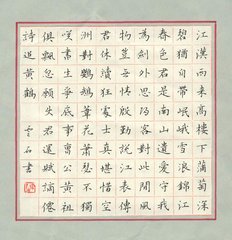 江漢西來高樓下蒲萄深
碧猶自帶岷峨雪浪錦江
春色君是南山遺愛守我
為劍外思歸客對此間風
物豈無情殷勤說江表傳
君休讀狂處士真堪惜空
洲對鸚鵡葦花蕭瑟不獨
咲書生爭底事曹公黃祖
俱飄忽願使君還賦謫仙
詩追黃鶴
云石書